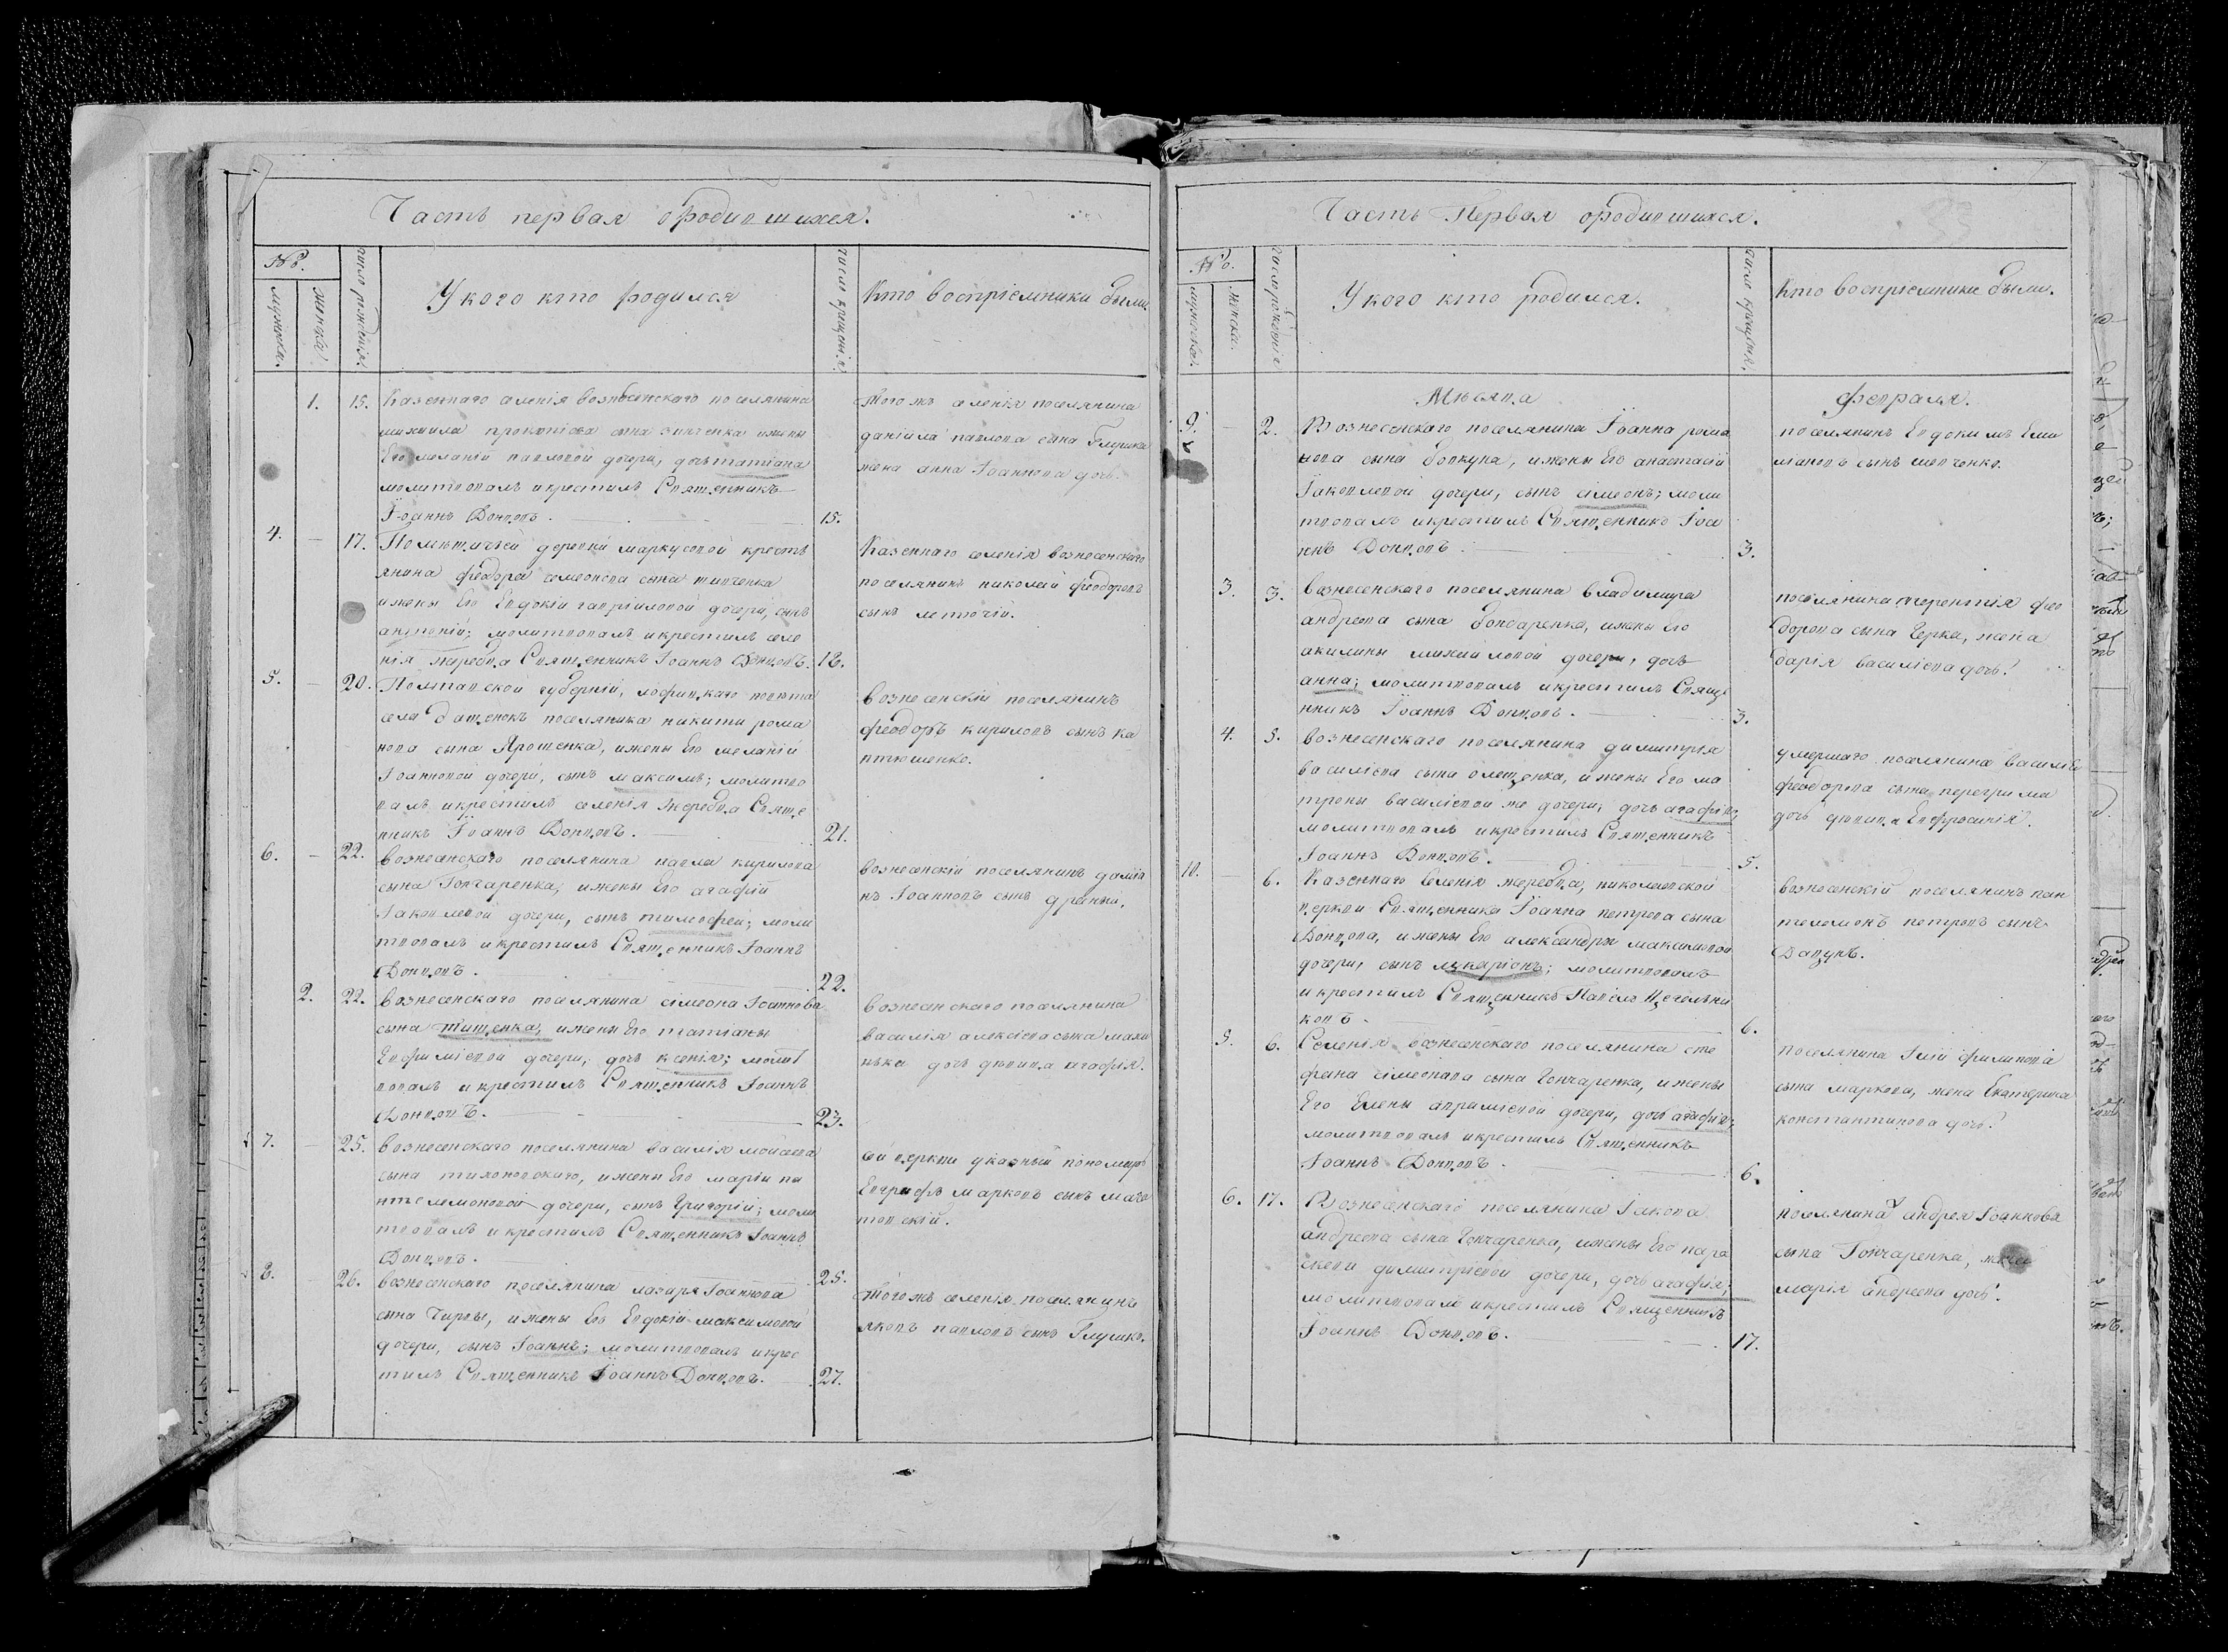 Часть первая о родившихся.
№.
мужеска.
женска.
число рождения.
У кого кто родился
число крещения.
Кто воспріемники были.
1. 15. Казеннаго селенія вознесенскаго поселянина
михаила прокопіева сына зинченка и жены
Его меланіи павловой дочери, дочь татіана
молитвовалъ и крестилъ Священникъ
Іоаннъ Донцовъ. 15.
Того жъ селенія поселянина
даніила павлова сына Глушка
жена анна Іоаннова дочь.
4. — 17. Помѣщичьей деревни маркусовой кресть
янина феодора симеонова сына типченка
и жены Его Евдокіи гавріиловой дочери, сынъ
антоній; молитвовалъ и крестилъ селе
нія жеребца Священникъ Іоаннъ Донцовъ. 18.
Казеннаго селенія вознесенскаго
поселянинъ николай феодоровъ
сынъ леточій.
5. — 20. Полтавской губерніи, лофицкаго повѣта
села поселянина никиты рома
нова сына Ярошенка, и жены Его меланіи
Іоанновой дочери, сынъ максимъ; молитво
валъ и крестилъ селенія жеребца Свяще
нникъ Іоаннъ Донцовъ. 21.
вознесенскій поселянинъ
феодоръ кириловъ сынъ ка
птюшенко.
6. — 22. вознесенскаго поселянина павла кирилова
сына Гончаренка, и жены Его агафіи
Іаковлевой дочери, сынъ тимофей; моли
твовалъ и крестилъ Священникъ Іоаннъ
Донцовъ. 22.
вознесенскій поселянинъ даміа
нъ Іоанновъ сынъ драный.
2. 22. вознесенскаго поселянина сімеона Іоаннова
сына тищенка, и жены Его татіаны
Евфиміевой дочери, дочь ксенія; молит
вовалъ и крестилъ Священникъ Іоаннъ
Донцовъ. 23.
вознесенскаго поселянина
василія алексіева сына махи
нька дочь дѣвица агафія.
7. — 25. вознесенскаго поселянина василія мойсеева
сына тихоновскаго, и жены Его маріи па
нтелемоновой дочери, сынъ Григорій; моли
твовалъ и крестилъ Священникъ Іоаннъ
Донцовъ. 25.
сей церкви указный пономарь
Евграфъ марковъ сынъ мага
товскій.
8. — 26. вознесенскаго поселянина лазаря Іоаннова
сына Чирвы, и жены Его Евдокіи максимовой
дочери, сынъ Іоаннъ; молитвовалъ и крес
тилъ Священникъ Іоаннъ Донцовъ. 27.
Того жъ селенія поселянинъ
яковъ павловъ сынъ Глушко.
Часть Первая о родившихся.
№.
мужеска.
женска.
число рожденія
У кого кто родился.
число крещенія.
Кто воспріемники были.
Мѣсяца февраля.
9. — 2. Вознесенскаго поселянина Іоанна рома
нова сына бовкуна, и жены Его анастасіи
Іаковлевой дочери, сынъ сімеонъ; моли
твовалъ и крестилъ Священникъ Іоа
ннъ Донцовъ. 3.
поселянинъ Евдокимъ Еми
ліановъ сынъ шевченко.
3. 3. вознесенскаго поселянина владимира
андреева сына бондаренка, и жены его
акилины михайловой дочери, дочь
анна; молитвовалъ и крестилъ Свяще
нникъ Іоаннъ Донцовъ. 3.
поселянина терентія фео
дорова сына Черка, жена
дарія василіева дочь.
4. 5. вознесенскаго поселянина димитрія
василіева сына олещенка, и жены Его ма
троны василіевой же дочери, дочь агафія;
молитвовалъ и крестилъ Священникъ
Іоаннъ Донцовъ. 5.
умершаго поселянина василія
феодорова сына перегрима
дочь дѣвица Евфросинія.
10. — 6. Казеннаго Селенія жеребца, николаевской
церкви Священника Іоанна петрова сына
Донцова, и жены Его александры максимовой
дочери, сынъ лукаріонъ; молитвовалъ
и крестилъ Священникъ Павелъ Щегольни
ковъ. 6.
вознесенскій поселянинъ пан
телемонъ петровъ сынъ
Дацунъ.
5. 6. Селенія вознесенскаго поселянина сте
фана сімеонова сына Гончаренка, и жены
Его Елены авраміевой дочери, дочь агафія;
молитвовалъ и крестилъ Священникъ
Іоаннъ Донцовъ. 6.
поселянина Іліи филипова
сына маркова, жена Екатерина
константинова дочь.
6. 17. Вознесенскаго поселянина Іакова
андреева сына Гончаренка, и жены Его пара
скеви димитріевой дочери, дочь агафія;
молитвовалъ и крестилъ Священникъ
Іоаннъ Донцовъ. 17.
поселянина андрея Іоаннова
сына Гончаренка, жена
марія андреева дочь.